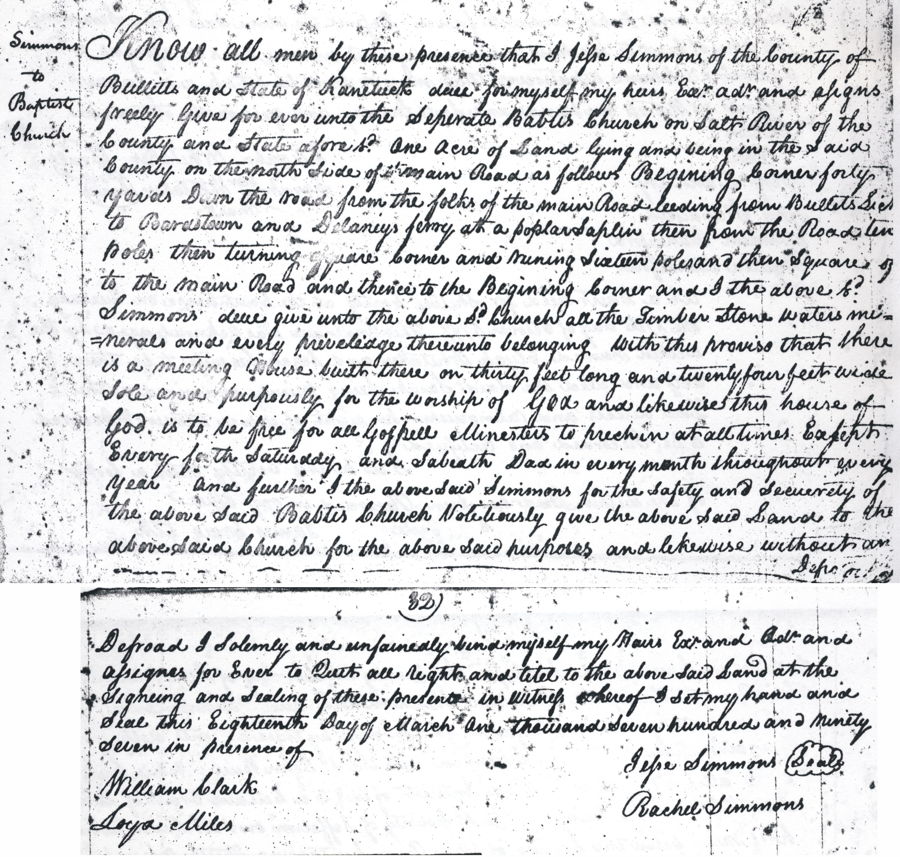 Simmons
to
Baptist
Church
Know all men by these presence that I Jesse Simmons of the County of
Bullitts and State of Kanetuck deue for myself my heirs Exr adr and asigns
freely Give for ever unto the Seperate Babtis Church on Salt River of the
County and State afore sd One Acre of Land lying and being in the Said
County on the north Side of main Road as follows Begining Corner forty
yards Down the road from the folks of the main Road leeding from Bullits Lick
to Bardstown and Delaneys ferry at a poplar Saplin then from the Road ten
Poles then turning Square Corner and runing Sixteen poles and then Square
to the main Road and thence to the Begining Corner and I the above Sd
Simmons deue give unto the above Sd Church all the Timber Stone waters mi=
=nerals and every priveledge thereunto belonging with this proviso that there
is a meeting House built there on thirty feet long and twenty four feet wide
Sole and purpously for the worship of God and likewise this house of
God is to be free for all Gospell Minesters to prech in at all times Except
Every Saturday and Sabeath Day in every month throughout every
year and further I the above Said Simmons for the Safety and Secuerity of
the above Said Babtis Church give the above Said Land to the
above Said Church for the above Said purposes and likewise without an
32
Defroad I Solemly and unfainedly bind myself my Hairs Exr and Adr and
assignes for Ever to Quit all right and titel to the above Said Land at the
Signeing and Sealing of these presents in Witness whereof I Set my hand and
Seal this Eighteenth Day of March One thousand Seven hundred and Ninety
Seven in presence of
Jesse Simmons Seal
William Clark
Rachel Simmons
Loyd Miles